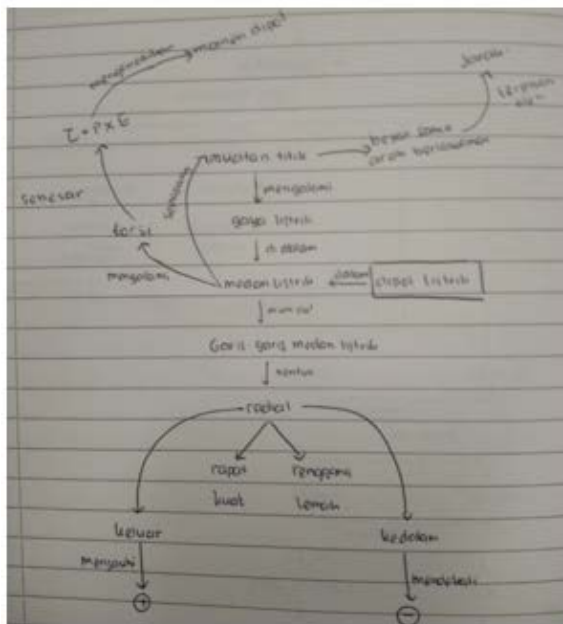 menghasilkan
momen dipol
Jarak
terpisah
oleh
τ = P × E
muatan titik
besar sama
arah berlawanan
sebesar
mengalami
gaya listrik
torsi
di dalam
mengalami
medan listrik
dalam
dipol listrik
muncul
Garis-garis medan listrik
bentuk
radial
rapat
renggang
kuat
lemah
keluar
kedalam
menjauhi
mendekati
+
−